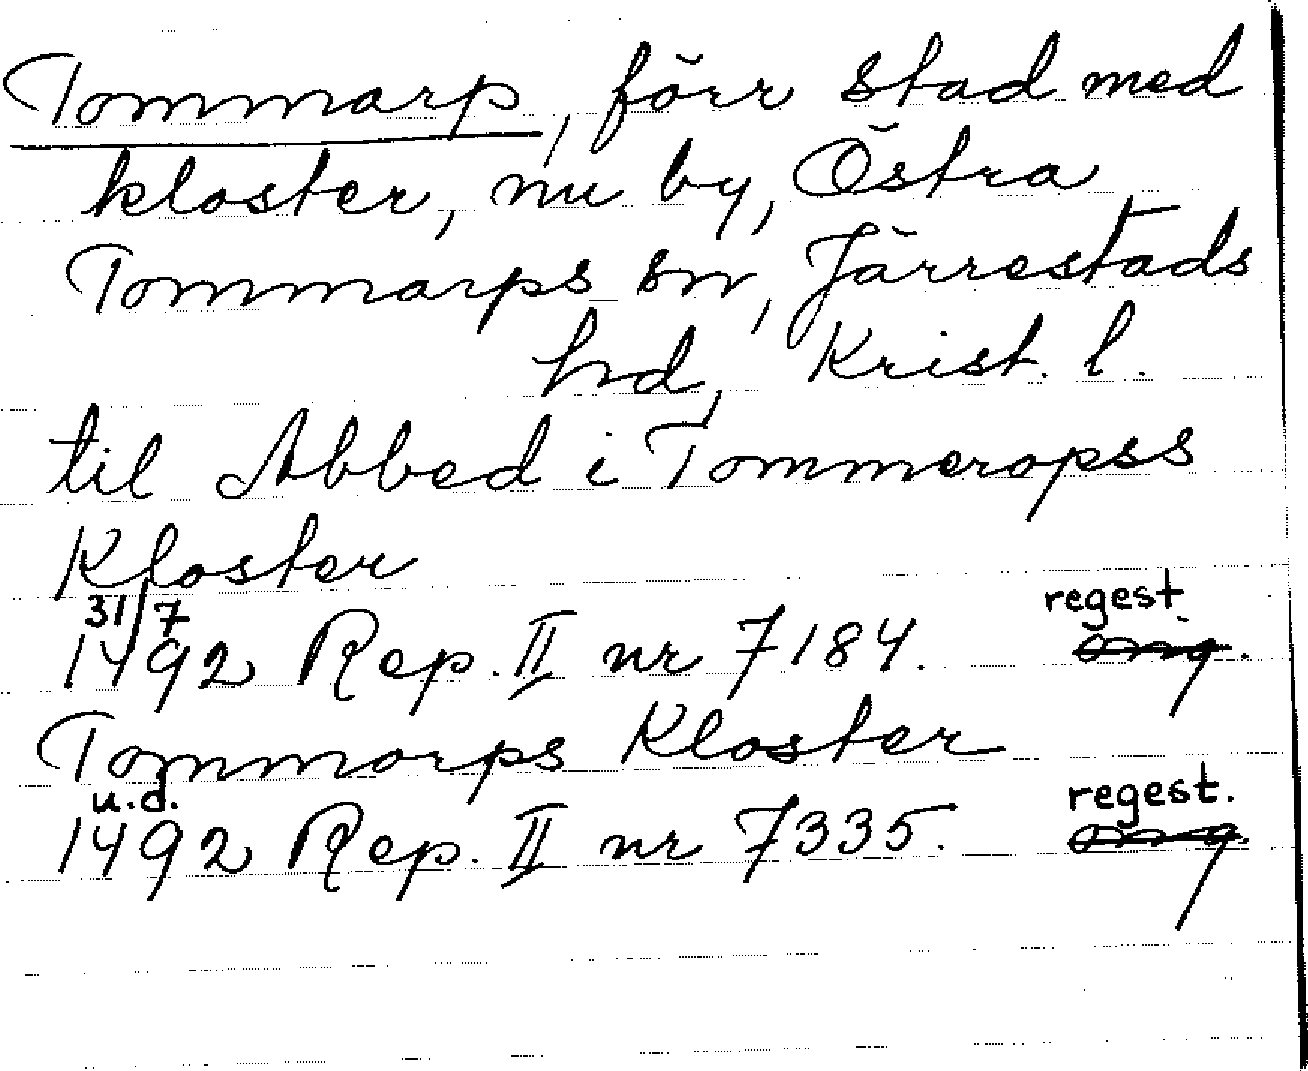 Tommarp, förr stad med
kloster, nu by, Östra
Tommarps sn, Järrestads
hd, Krist. l.
til Abbed i Tommeropss
Kloster
31/7 regest.
1492 Rep. II nr 7184. orig.
Tommorps Kloster
u.d. regest.
1492 Rep. II nr 7335. orig.